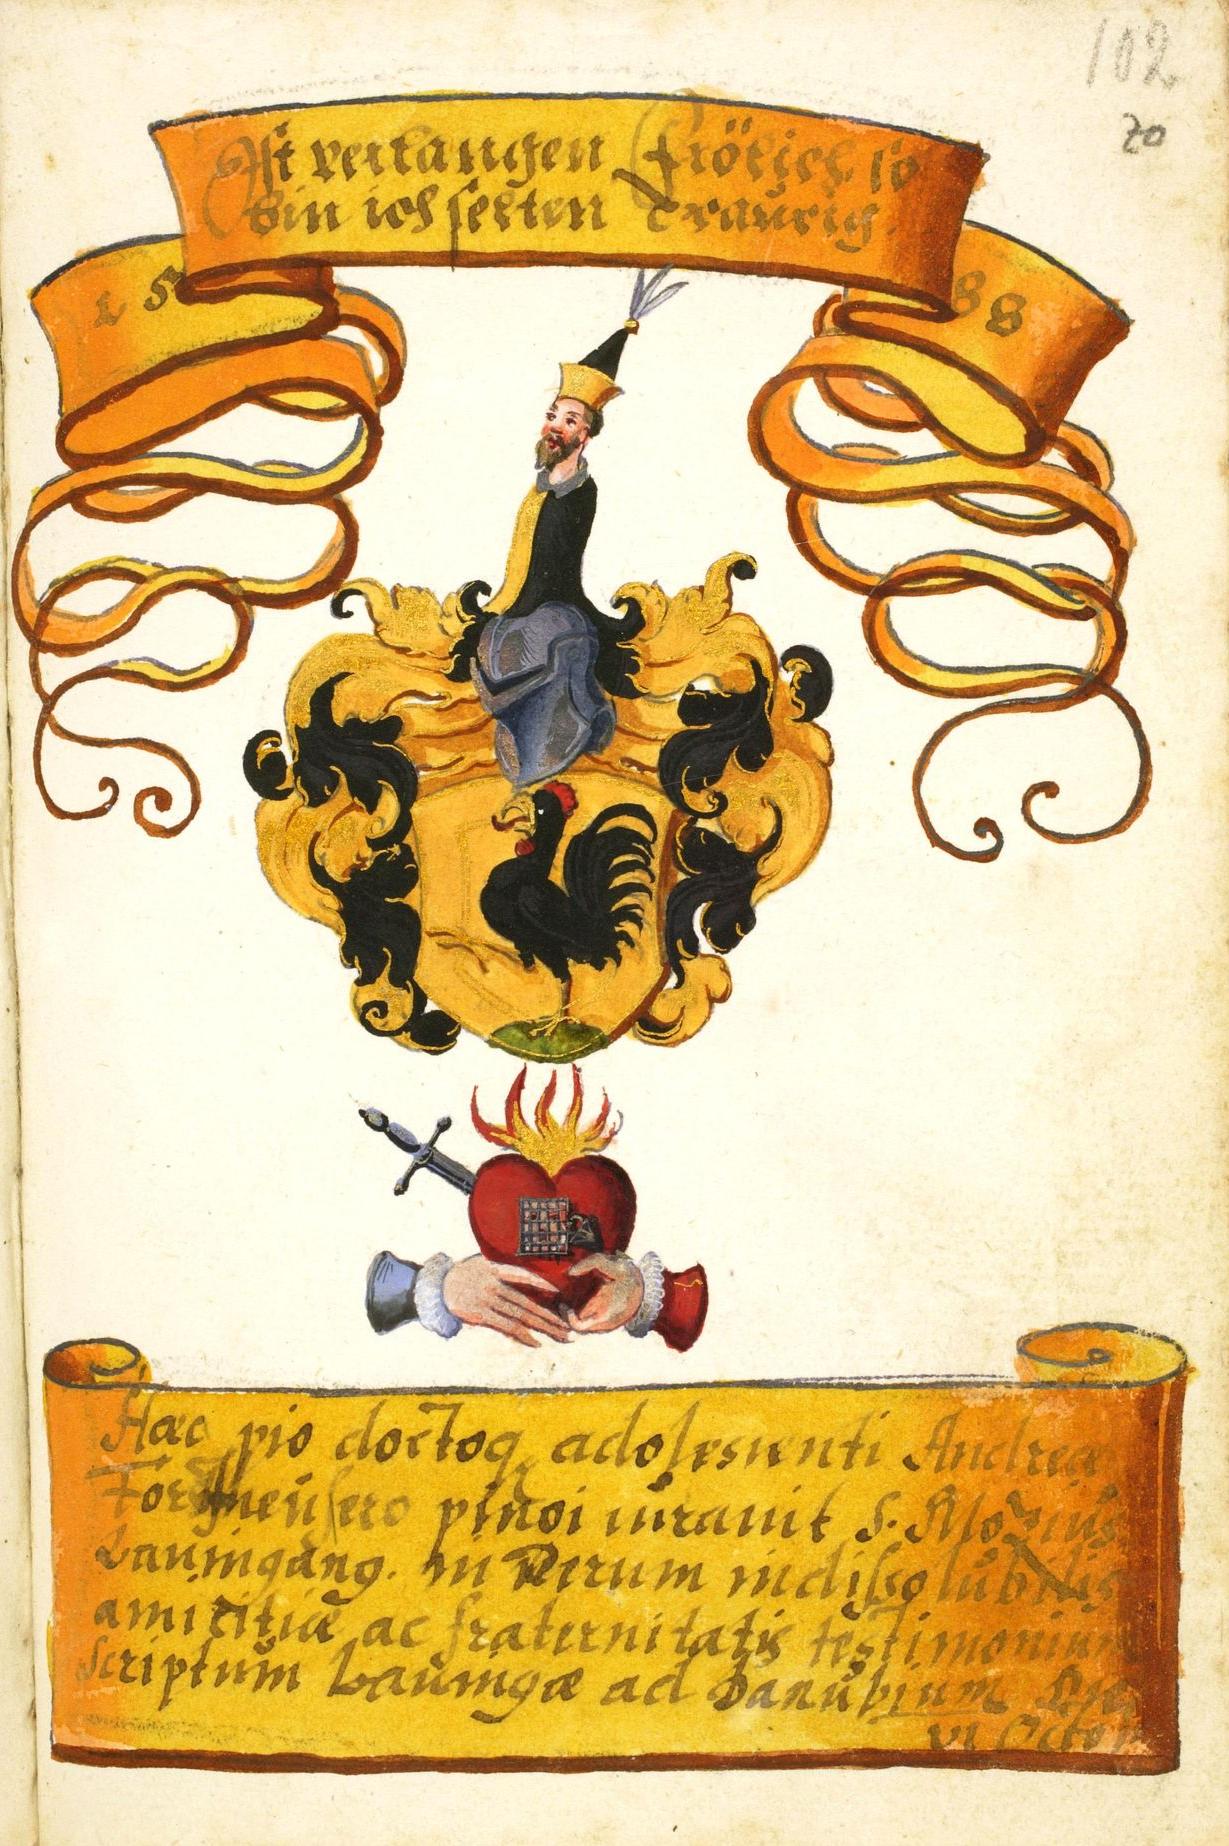 102
20
Ist verlangen Frölich so
bin ich selten Traurig.
15 88
Hæc pio doctoq adolescenti Andreæ
pinxi iuravit S.
Lauingang. in Verum indissolubilis
amicitiæ ac fraternitatis testimonium
Scriptum Lauingæ ad Danubium Die
vi Octob